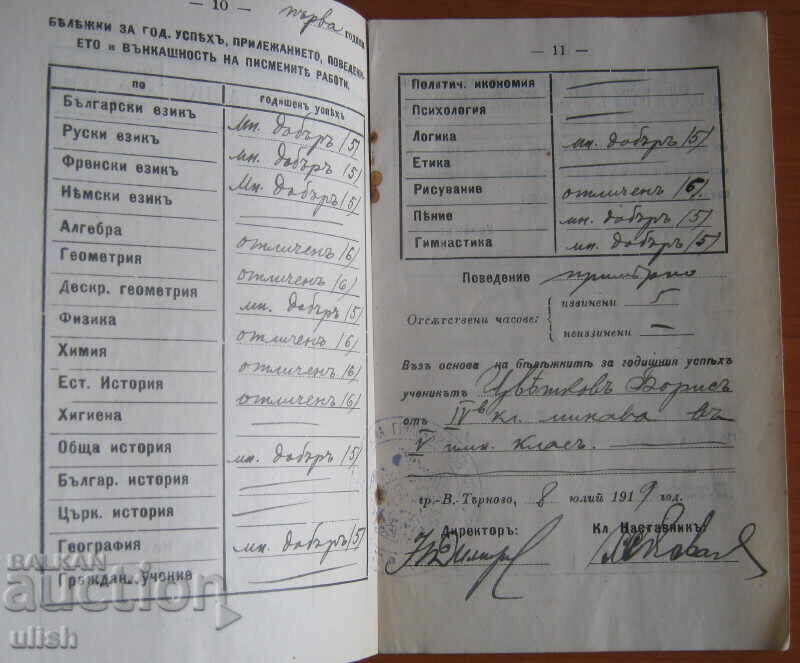 — 10 —
първа година
БѢЛѢЖКИ ЗА ГОД. УСПѢХЪ, ПРИЛЕЖАНИЕТО, ПОВЕДЕНИ-
ЕТО и ВЪНКАШНОСТЬ НА ПИСМЕНИТѢ РАБОТИ.
по годишенъ успѣхъ
Български езикъ мн. добъръ /5/
Руски езикъ мн. добъръ /5/
Френски езикъ мн. добъръ /5/
Нѣмски езикъ
Алгебра отличенъ /6/
Геометрия отличенъ /6/
Дескр. геометрия мн. добъръ /5/
Физика отличенъ /6/
Химия отличенъ /6/
Ест. История отличенъ /6/
Хигиена
Обща история мн. добъръ /5/
Българ. история
Църк. история
География мн. добъръ /5/
Граждан. учение
— 11 —
Политич. икономия
Психология
Логика мн. добъръ /5/
Етика
Рисувание отличенъ /6/
Пѣние мн. добъръ /5/
Гимнастика мн. добъръ /5/
Поведение примѣрно
Отсѫтствени часове: извинени 5
неизвинени —
Възъ основа на бѣлѣжкитѣ за годишния успѣхъ
ученикътъ Цвѣтковъ Борисъ
отъ IVв кл. минава въ
V гимн. класъ.
гр.-В. Търново, 8 юлий 1919 год.
Директоръ: Кл. Наставникъ:
BALKAN
auction
ulish